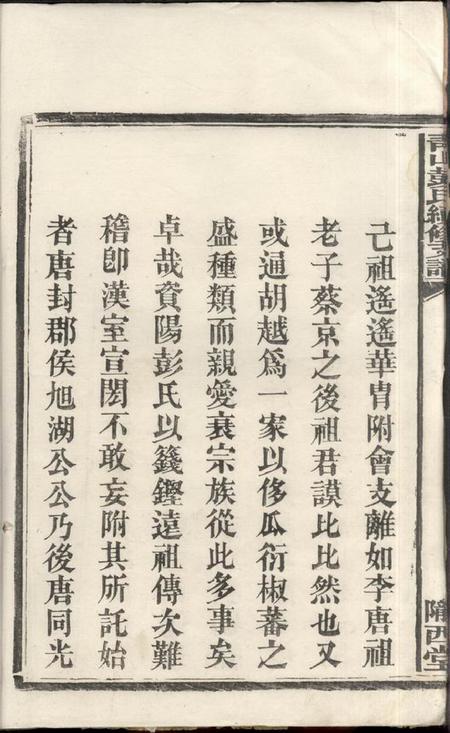 青山彭氏續修支譜
隴西堂
己祖遙遙華胄附會支離如李唐祖
老子蔡京之後祖君謨比比然也又
或通胡越爲一家以侈瓜衍椒蕃之
盛種類而親愛衰宗族從此多事矣
卓哉資陽彭氏以籛鏗遠祖傳次難
稽卽漢室宣閎不敢妄附其所託始
者唐封郡侯旭湖公公乃後唐同光